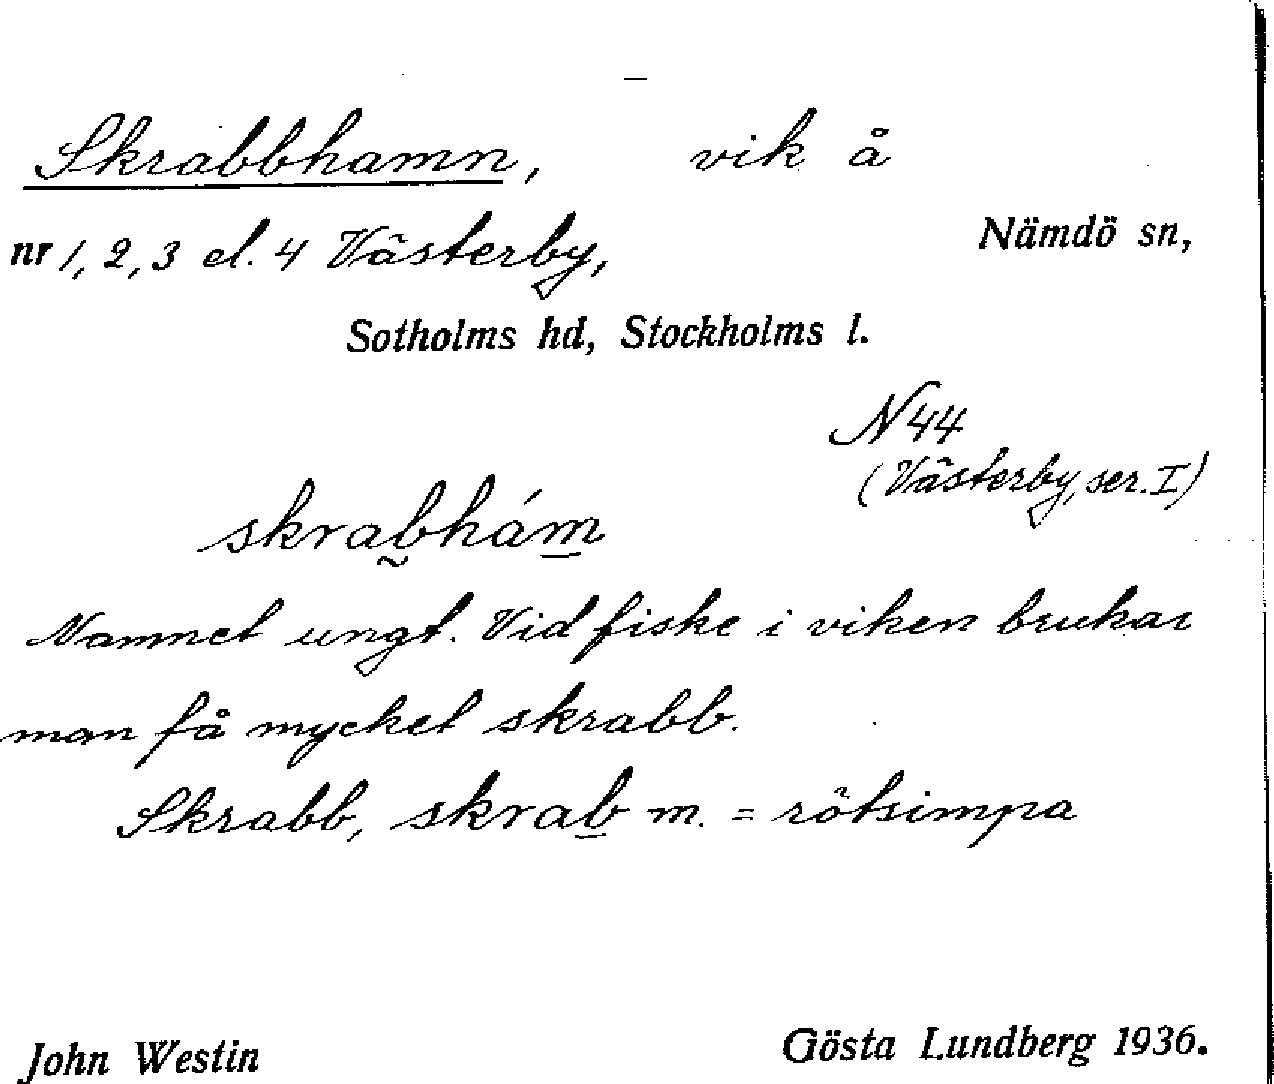 Skrabbhamn, vik å
nr 1, 2, 3 el. 4 Västerby, Nämdö sn,
Sotholms hd, Stockholms l.
N 44
(Västerby, ser. I)
skrab̰hám̲
Namnet ungt. Vid fiske i viken brukar
man få mycket skrabb.
Skrabb, skrab̲ m. = rötsimpa
John Westin Gösta Lundberg 1936.